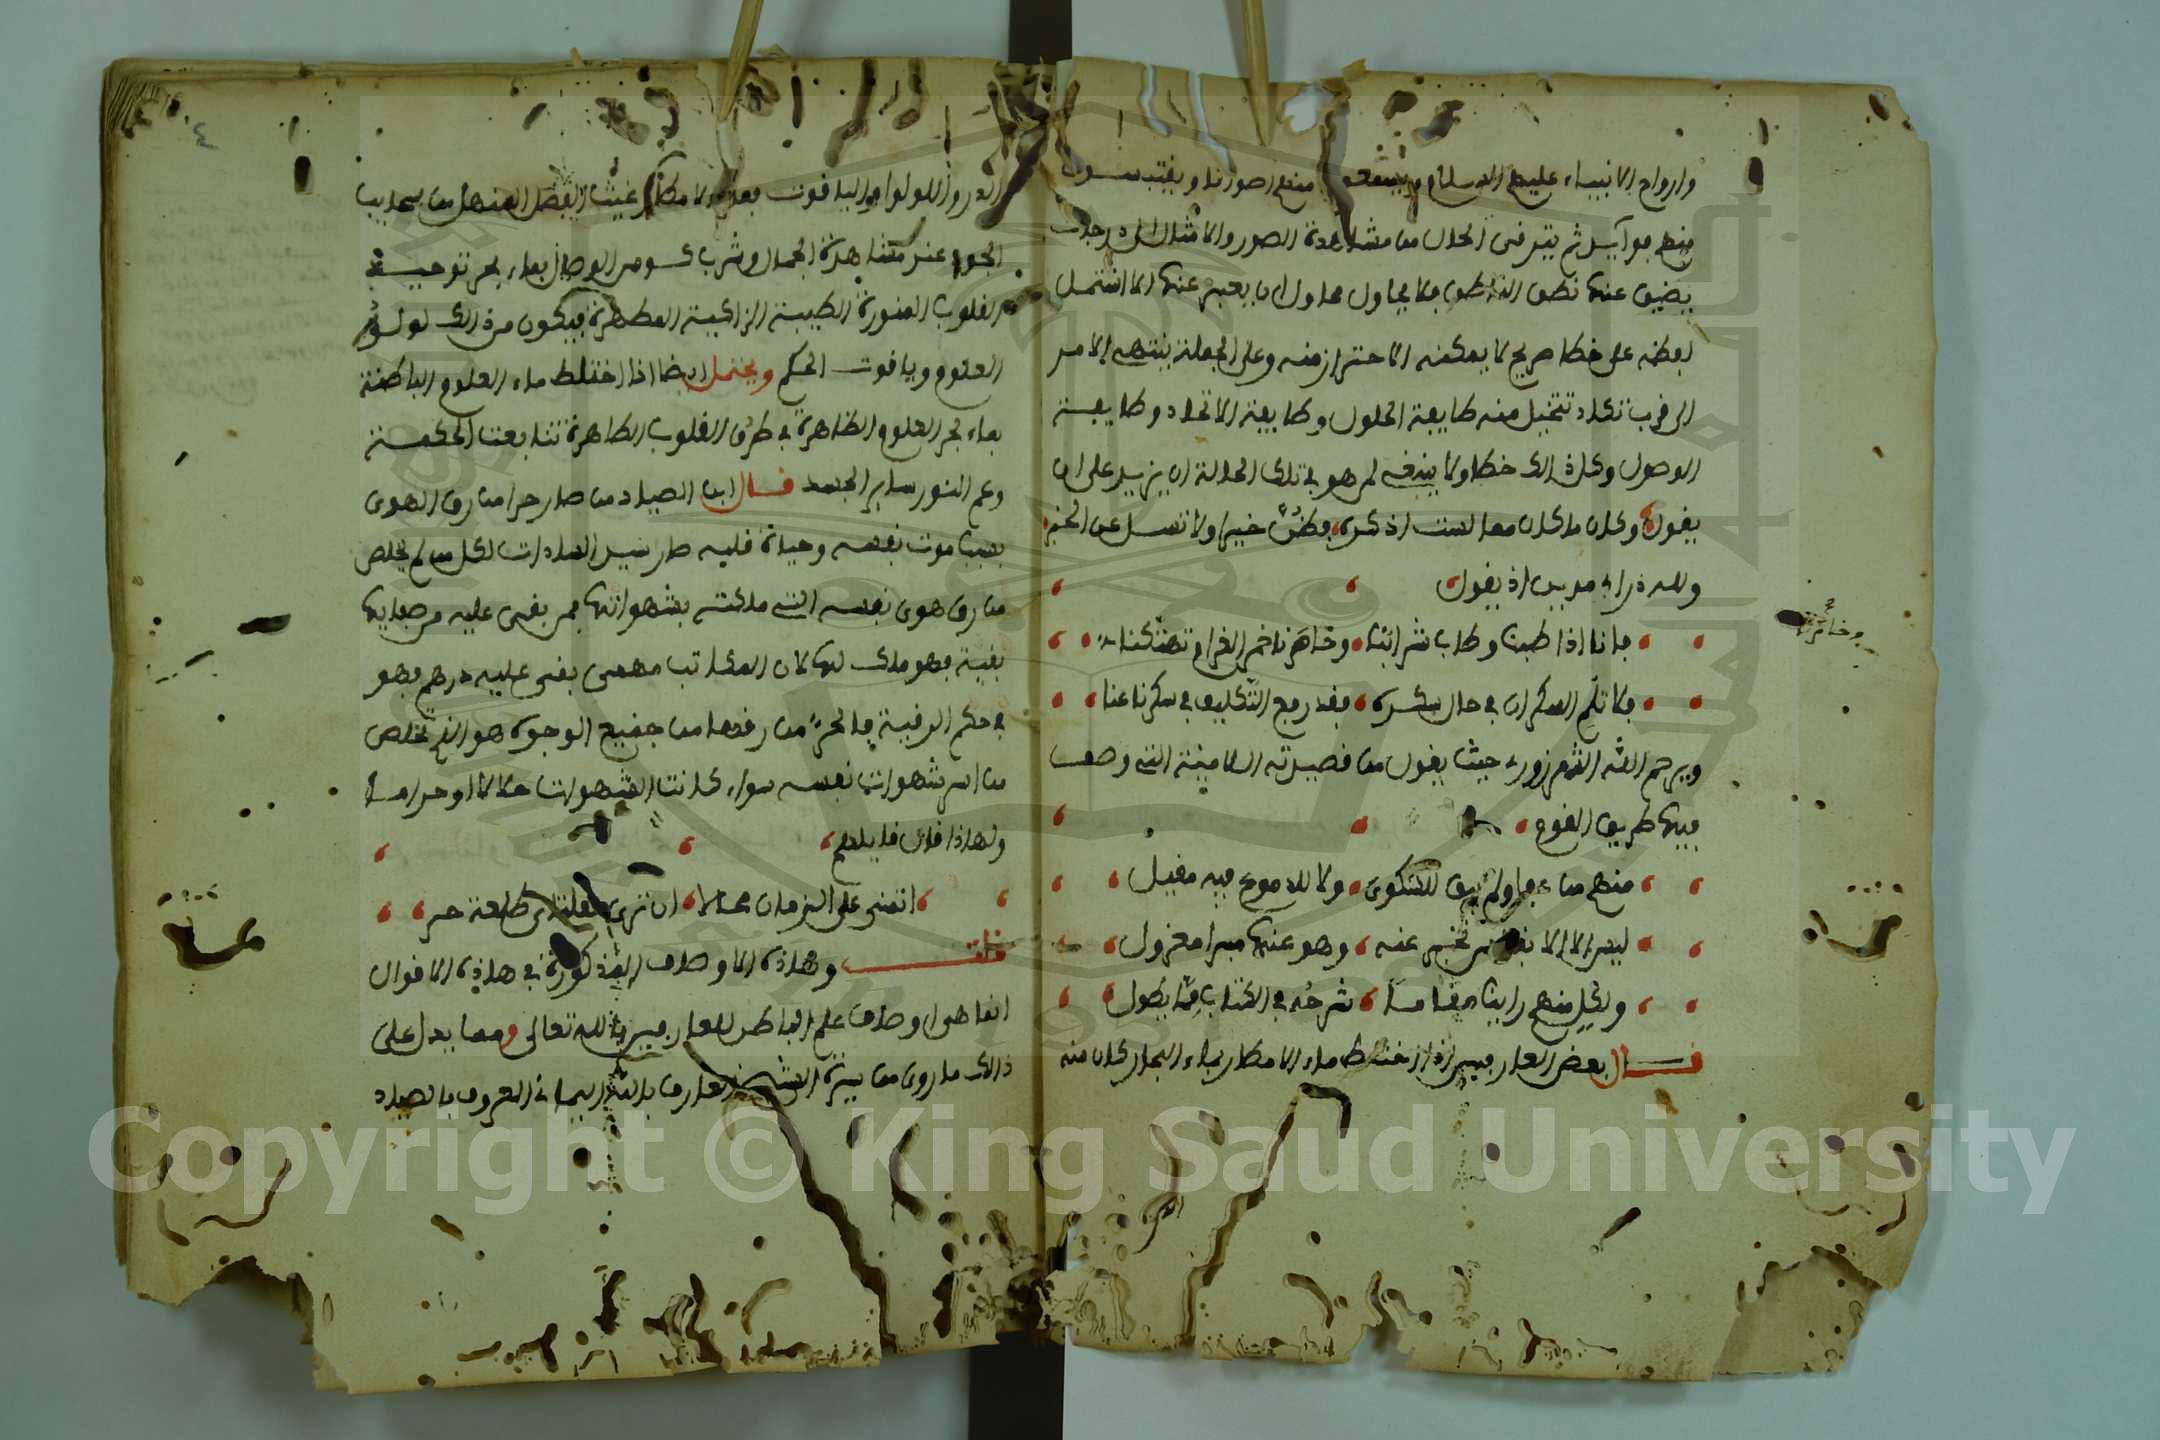 وارواح الانبياء عليهم السلام ويسمعون منهم اصواتا ويقتبسون
منهم فوايد ثم يترقى الحال من مشاهدة الصور والامثال الى درجات
يضيق عنها نطق الناطق فلا يحاول محاول ان يعبر عنها الا اشتمل
لفظه على خطا صريح لا يمكنه الاحتراز منه وعلى الجملة ينتهى الامر
الى قرب تكاد تتخيل منه طايفة الحلول وطايفة الاتحاد وطايفة
الوصول وكل ذالك خطا ولا ينبغى لمن هو في تلك الحالة ان يزيد على ان
يقول وكان ماكان مما لست اذكره فظن خيرا ولا تسل عن الخبر
ولله در ابى مدين اذ يقول
فانا اذا طبنا وطاب شرابنا وخامرنا خمر الغرام تهتكنا
فلا تلم السكران في حال سكره فقد رفع التكليف في سكرنا عنا
ويرحم الله الشهرزورى حيث يقول من قصيدته اللامية التى وصف
فيها طريق القوم
منهم من عفا ولم يبق للشكوى ولا للدموع فيه مقيل
ليس الا الانفاس تخبر عنه وهو عنها مبرا معزول
ولكل منهم راينا مقاما شرحه في الكتاب مما يطول
قال بعض العارفين اذا اختلط ماء الامطار بماء البحار كان منه
وخامرنا
الدر واللولو والياقوت فعلا لامطار غيث الفضل المنهل من سحايب
الجود عند مشاهدة الجمال وشرب كوس الوصال بماء بحر توحيد
القلوب المنورة الطيبة الزاكية المطهرة فيكون من ذالك لولو
العلوم وياقوت الحكم ويحتمل ايضا اذا اختلط ماء العلوم الباطنة
بماء بحر العلوم الظاهرة في طرق القلوب الطاهرة تتابعت الحكمة
وعم النور ساير الجسد قال ابن الصياد من صار حرا من رق الهوى
بسبب موت نفسه وحياة قلبه صار سيد السادات لكل من لم يخلص
من رق هوى نفسه التى ملكته بشهواتها فمن بقى عليه من صفاتها
بقية فهو ملك لها لان المكاتب مهمى بقى عليه درهم فهو
في حكم الرقية فالحر من رقها من جميع الوجوه هو الذى تخلص
من اسر شهوات نفسه سواء كانت الشهوات حلالا او حراما
ولهاذا قال قايلهم
اتمنى على الزمان محالا ان ترى مقلتاى طلعة حر
قلت وهاذه الاوصاف المذكورة في هاذه الاقوال
انما هى اوصاف علم الباطن للعارفين بالله تعالى ومما يدل على
ذالك ما روى من سيرة الشيخ العارف بالله اليمانى المعروف بالصياد
Copyright © King Saud University